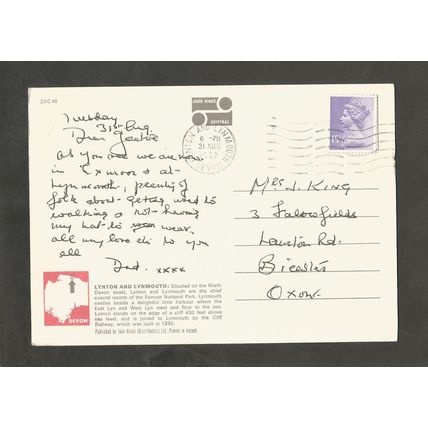 2DC48
JOHN HINDE
ORIGINAL
Tuesday
31st Aug.
Dear
As you see we are now
in Exmoor & at
Lynmouth, plenty of
folk about. Getting used to
walking & not having
my hat to wear
all my love etc to you
all
Dad. xxxx
LYNTON AND LYNMOUTH
DEVON
6 - PM
31 AUG
1982
Mrs J. KING
3 Fallowfields
Launton Rd.
Bicester
Oxon.
LYNTON AND LYNMOUTH: Situated on the North
Devon coast, Lynton and Lynmouth are the chief
coastal resorts of the Exmoor National Park. Lynmouth
nestles beside a delightful little harbour where the
East Lyn and West Lyn meet and flow to the sea.
Lynton stands on the edge of a cliff 430 feet above
sea level, and is joined to Lynmouth by the Cliff
Railway, which was built in 1890.
Published by John Hinde (Distributors) Ltd. Printed in Ireland.
DEVON